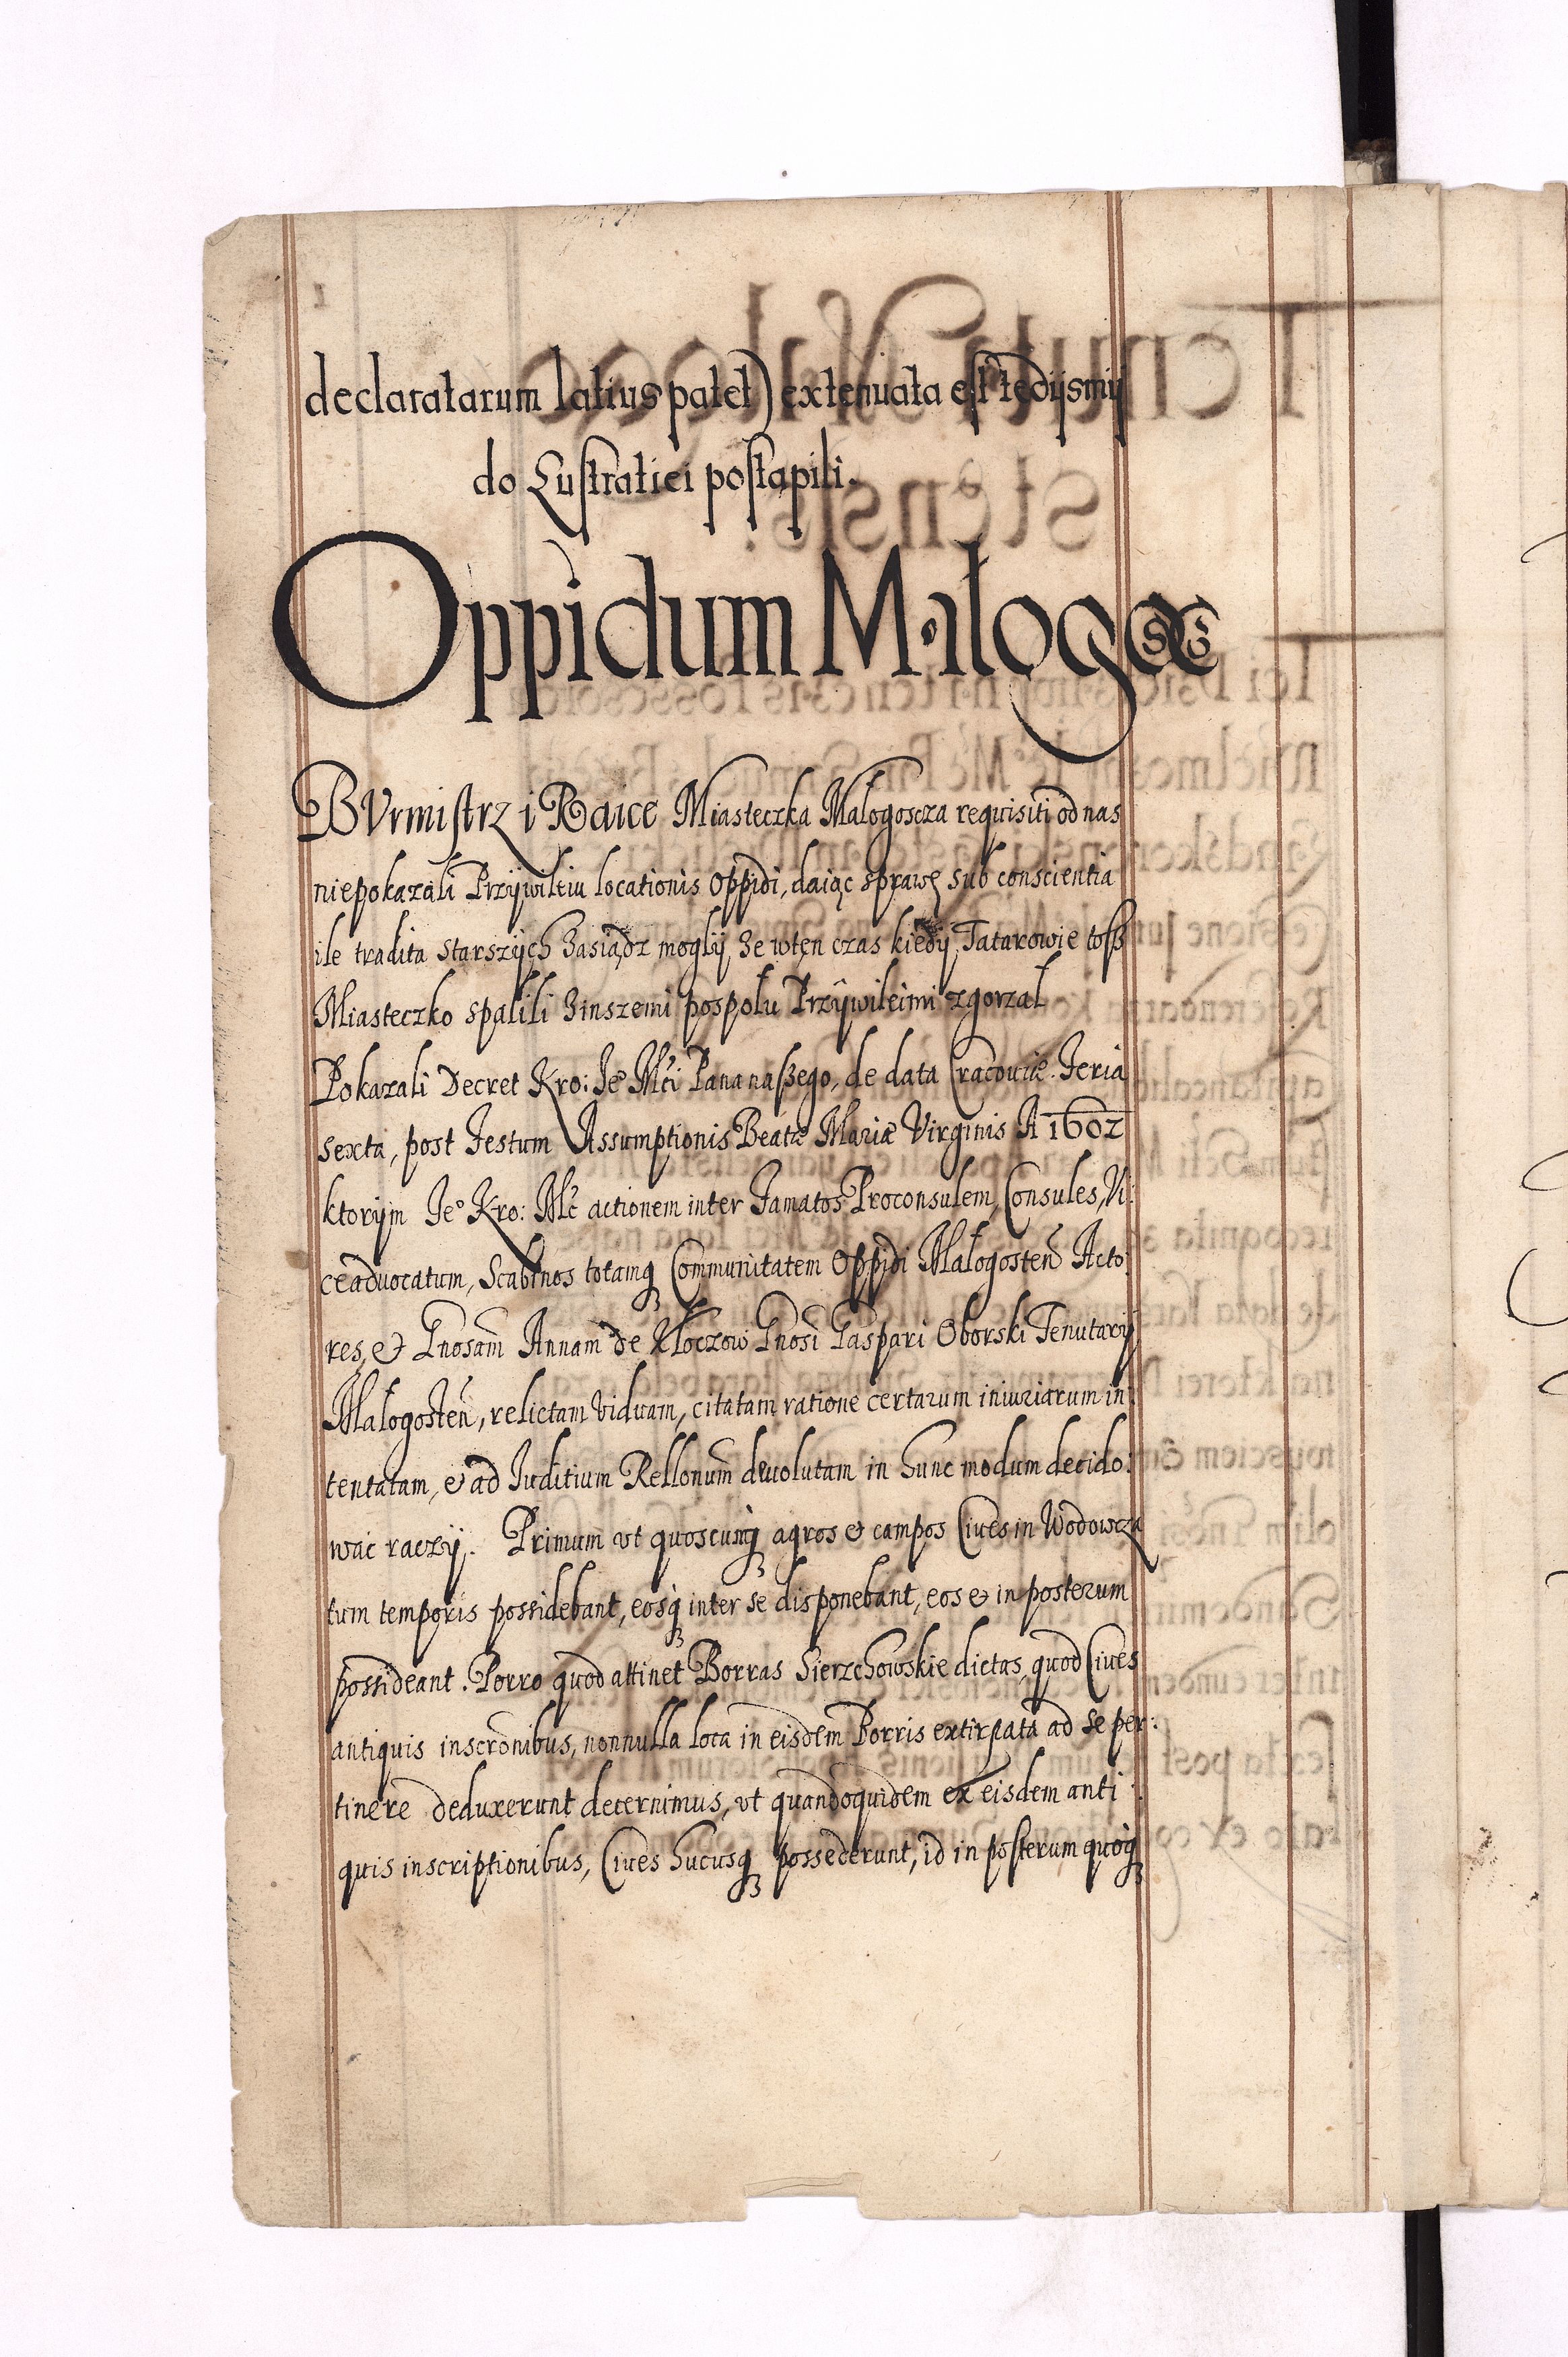 declaratarum latius patet) extenuata est tedÿsmÿ
do Lustratiei postąpili.
Oppidum Małogosc
BVrmistrz i Raice Miasteczka Małogoscza requisiti od nas
niepokazali Przÿwileiu locationis oppidi, daiąc sprawę sub conscientia
ile tradita starszÿch zasiądz moglÿ, ze wten czas kiedÿ Tatarowie toß
Miasteczko spalili zinszemi pospołu Przÿwileimi zgorzał
Pokazali Decret Kro: Je° Mći Pana naßego, de data Cracouiæ. Feria
sexta, post Festum Assumptionis Beatæ Mariæ Virginis A 1602
ktorÿm Je° Kro: Mć actionem inter Famatos Proconsulem, Consules, Vi:
ceaduocatum, Scabinos totamq Communitatem Oppidi Małogosten Acto:
res, et Gnosam Annam de Kłoczow Gnosi Gaspari Oborski Tenutarÿ
Małogosten, relictam viduam, citatam ratione certarum iniuriarum in:
tentatam, et ad Iuditium Rellonum deuolutam in hunc modum decido:
wać raczÿ. Primum vt quoscunq agros et campos Ciues in Wodowcza
tum temporis possidebant, eosq inter se disponebant, eos et in posterum
possideant. Porro quod attinet Borras Sierzchowskie dictas, quod Ciues
antiquis inscronibus, nonnulla loca in eisdem Borris extirpata ad se per:
tinere deduxerunt decernimus, vt quandoquidem ex eisdem anti:
quis inscriptionibus, Ciues hucusq possederunt, id in posterum quoq